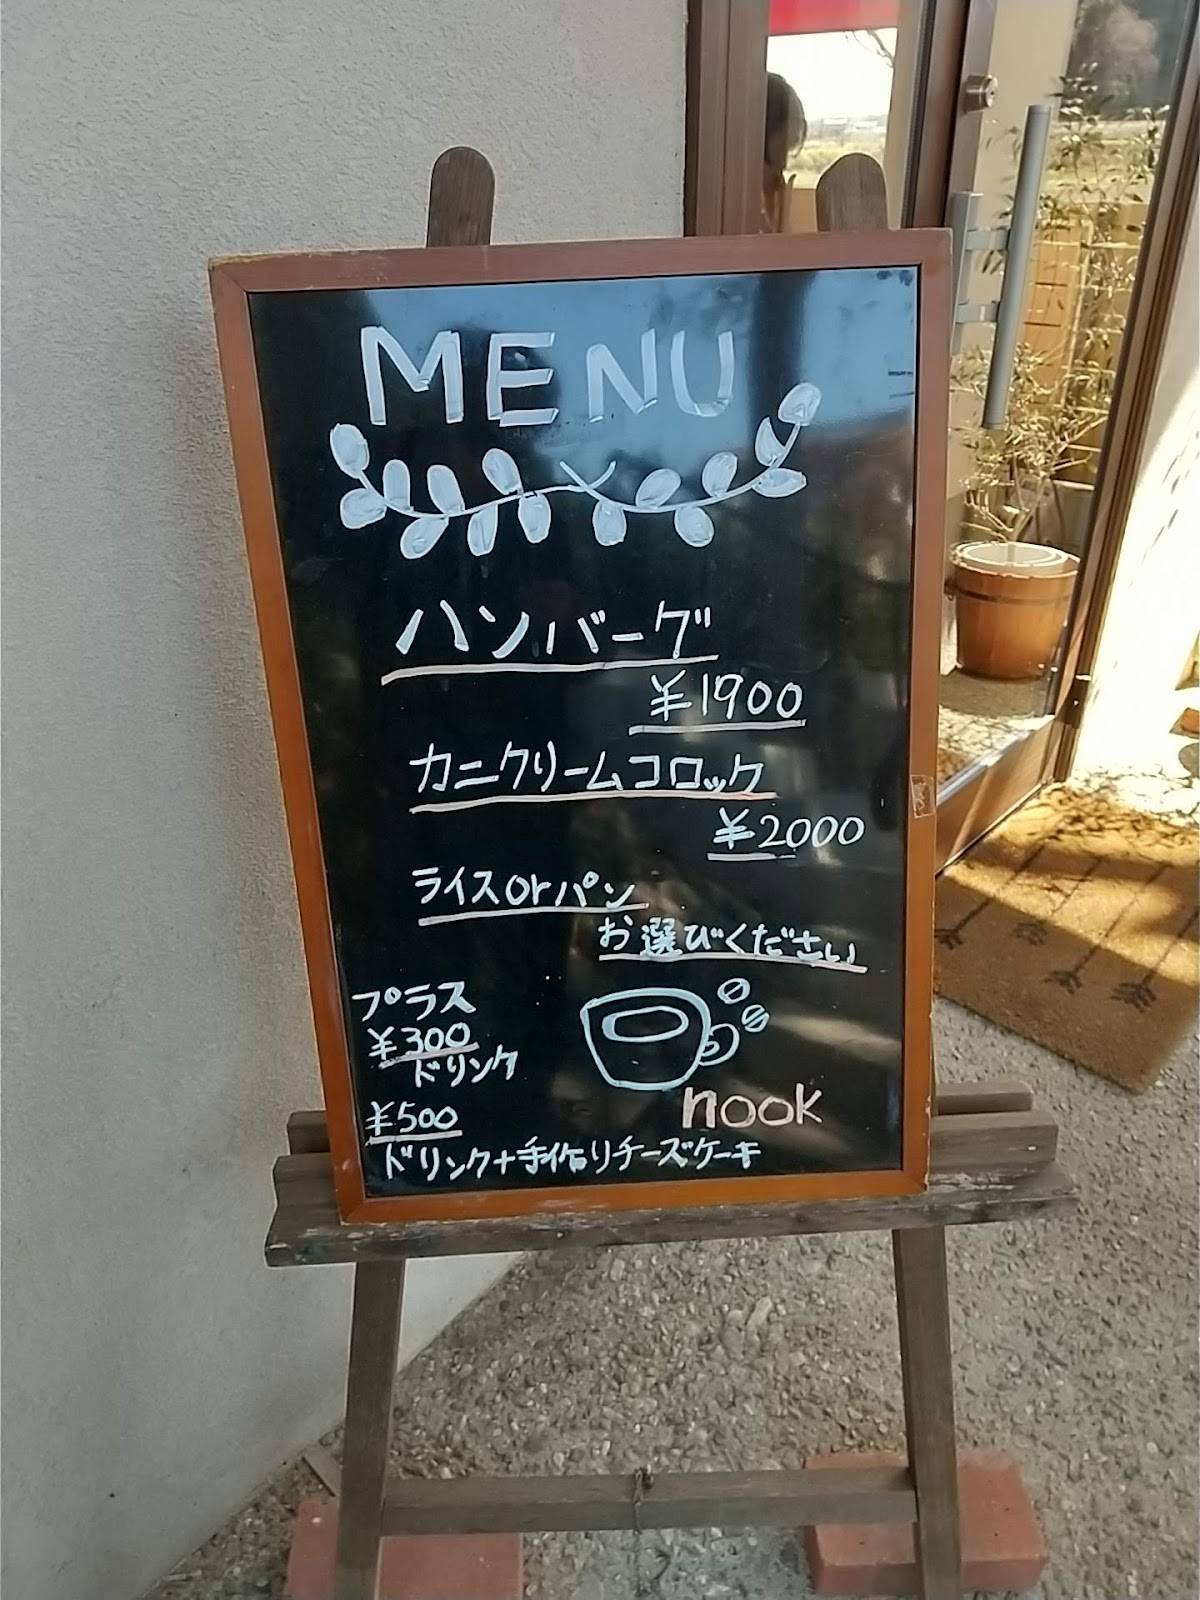 MENU
ハンバーグ
¥1900
カニクリームコロック
¥2000
ライスorパン
お選びください
プラス
¥300
ドリンク
nook
¥500
ドリンク+手作りチーズケーキ